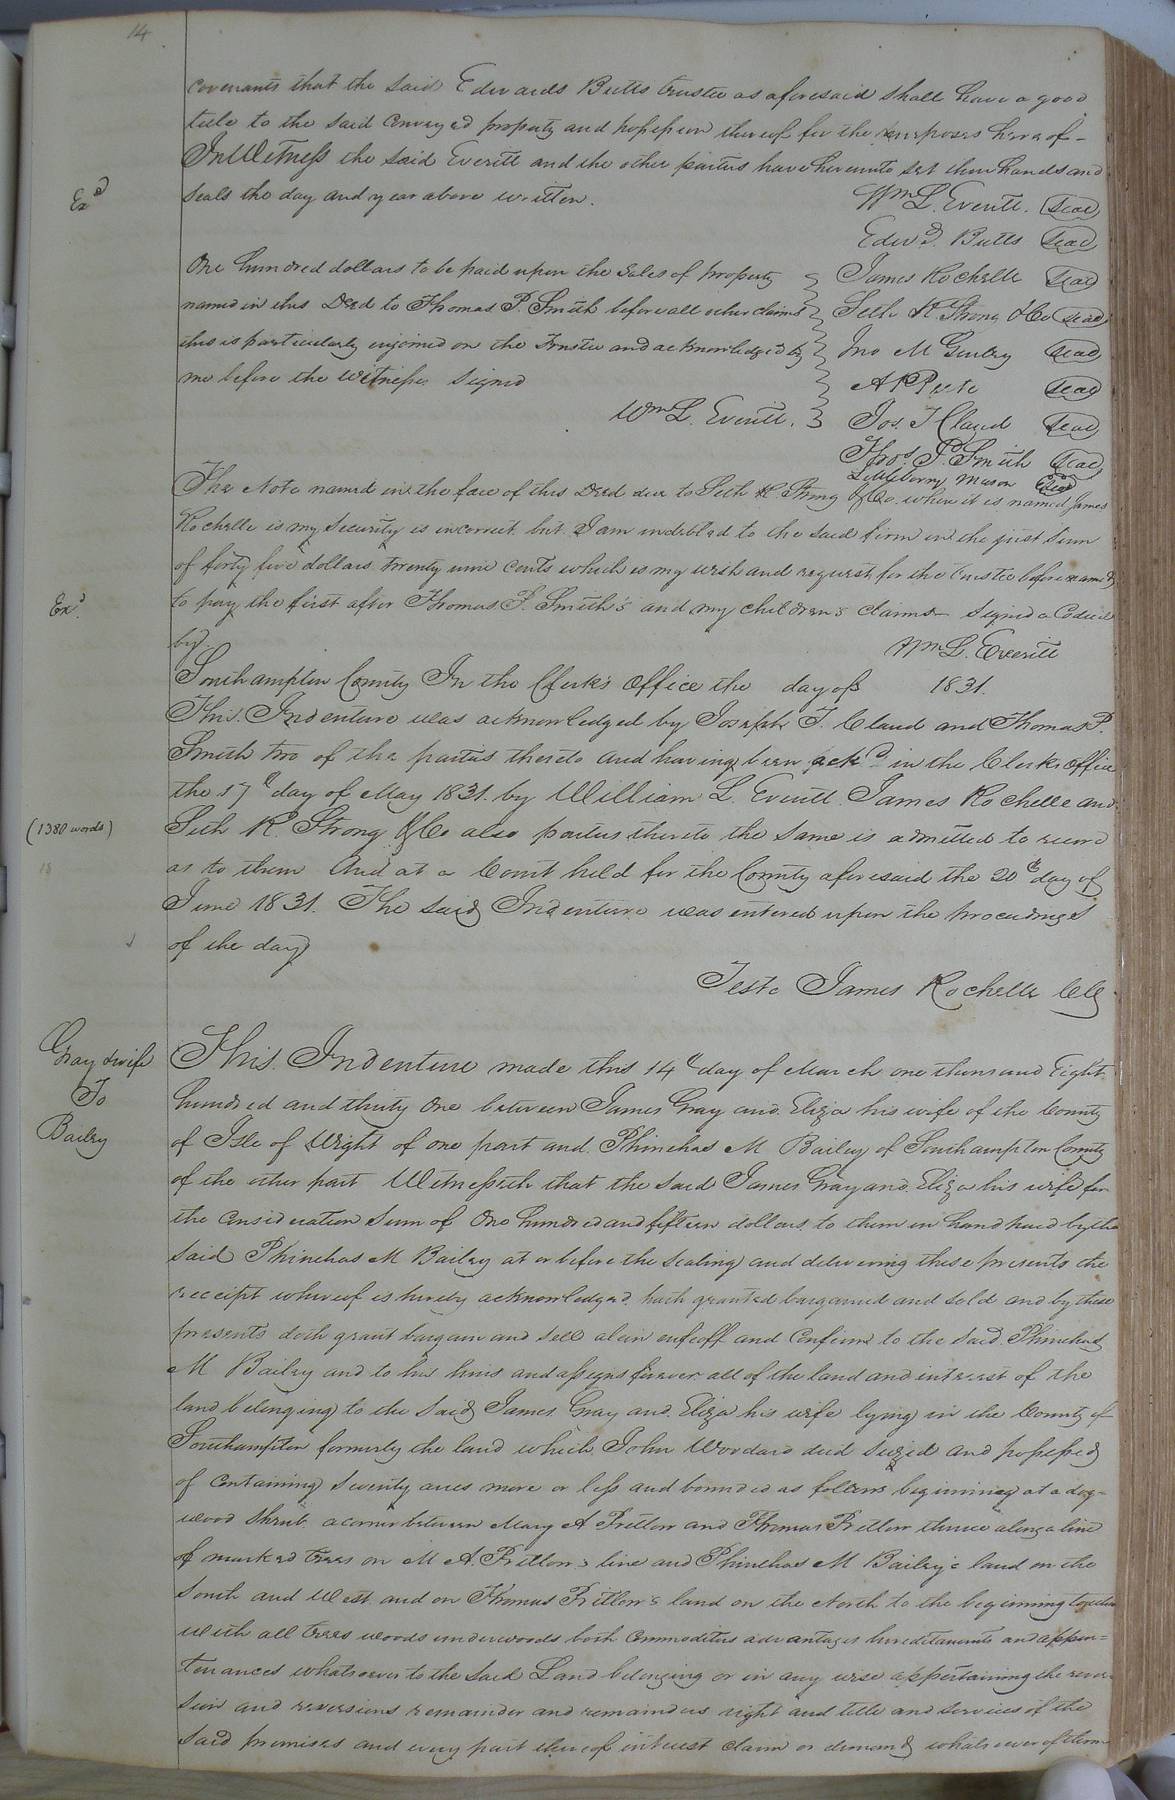 14
covenants that the said Edwards Butts trustee as aforesaid shall have a good
title to the said Conveyed property and possession thereof for the purposes hereof-
In Witness the said Everitt and the other parties have hereunto set their hands and
Exd
seals the day and year above written.
Wm L. Everitt. Seal
Edwd. Butts Seal
One hundred dollars to be paid upon the Sales of property
James Rochelle Seal
named in this Deed to Thomas P. Smith before all other claims
Seth R. Strong & Co Seal
this is particularly enjoined on the Trustee and acknowledged by
Jno M Gurley Seal
me before the Witnesses Signed
Seal
Wm L. Everitt.
Jos. T Claud Seal
Thos P. Smith Seal
Littleberry Mason Seal
The Note named in the face of this Deed due to Seth R Strong & Co. when it is named James
Rochelle is my Security is incorrect but I am indebted to the said firm in the just Sum
of forty five dollars twenty nine Cents which is my wish and request for the trustee before named
Exd.
to pay the first after Thomas P. Smith's and my children's Claims Signed a Codicil
by.
Wm L. Everitt
Southampton County In the Clerk's Office the day of 1831.
This Indenture was acknowledged by Joseph T. Claud and Thomas P.
Smith two of the parties thereto and having been ackd in the Clerks office
the 17th day of May 1831. by William L. Everitt James Rochelle and
(1380 words)
Seth R. Strong & Co also parties thereto the same is admitted to record
18
as to them And at a Court held for the County aforesaid the 20th day of
June 1831. The said Indenture was entered upon the proceedings
of the day
Teste James Rochelle CC
Gray & wife
To
Bailey
This Indenture made this 14th day of March one thousand Eight
hundred and thirty One between James Gray and Eliza his wife of the County
of Isle of Wight of one part and Phinehas M Bailey of Southampton County
of the other part Witnesseth that the said James Gray and Eliza his wife for
the Consideration Sum of One hundred and fifteen dollars to them in hand paid by the
said Phinehas M Bailey at or before the Sealing and delivering these presents the
receipt whereof is hereby acknowledged hath granted bargained and Sold and by these
presents doth grant bargain and Sell alien enfeoff and Confirm to the Said Phinehas
M Bailey and to his heirs and assigns forever all of the land and interest of the
land belonging to the said James Gray and Eliza his wife lying in the County of
Southampton formerly the land which John Woodard died Seized and possessed
of Containing Seventy acres more or less and bounded as follows beginning at a dog-
wood Shrub a corner between Mary A Pretlow and Thomas Pretlow thence along a line
of marked trees on M A. Pretlow's line and Phinehas M Bailey's land on the
South and West and on Thomas Pretlow's land on the North to the beginning together
with all trees woods underwoods both Commodities advantages hereditaments and appur=
tenances whatsoever to the Said Land belonging or in any wise appertaining the rever
sion and reversions remainder and remainders right and title and services of the
Said premises and every part thereof interest Claim or demand whatsoever of them